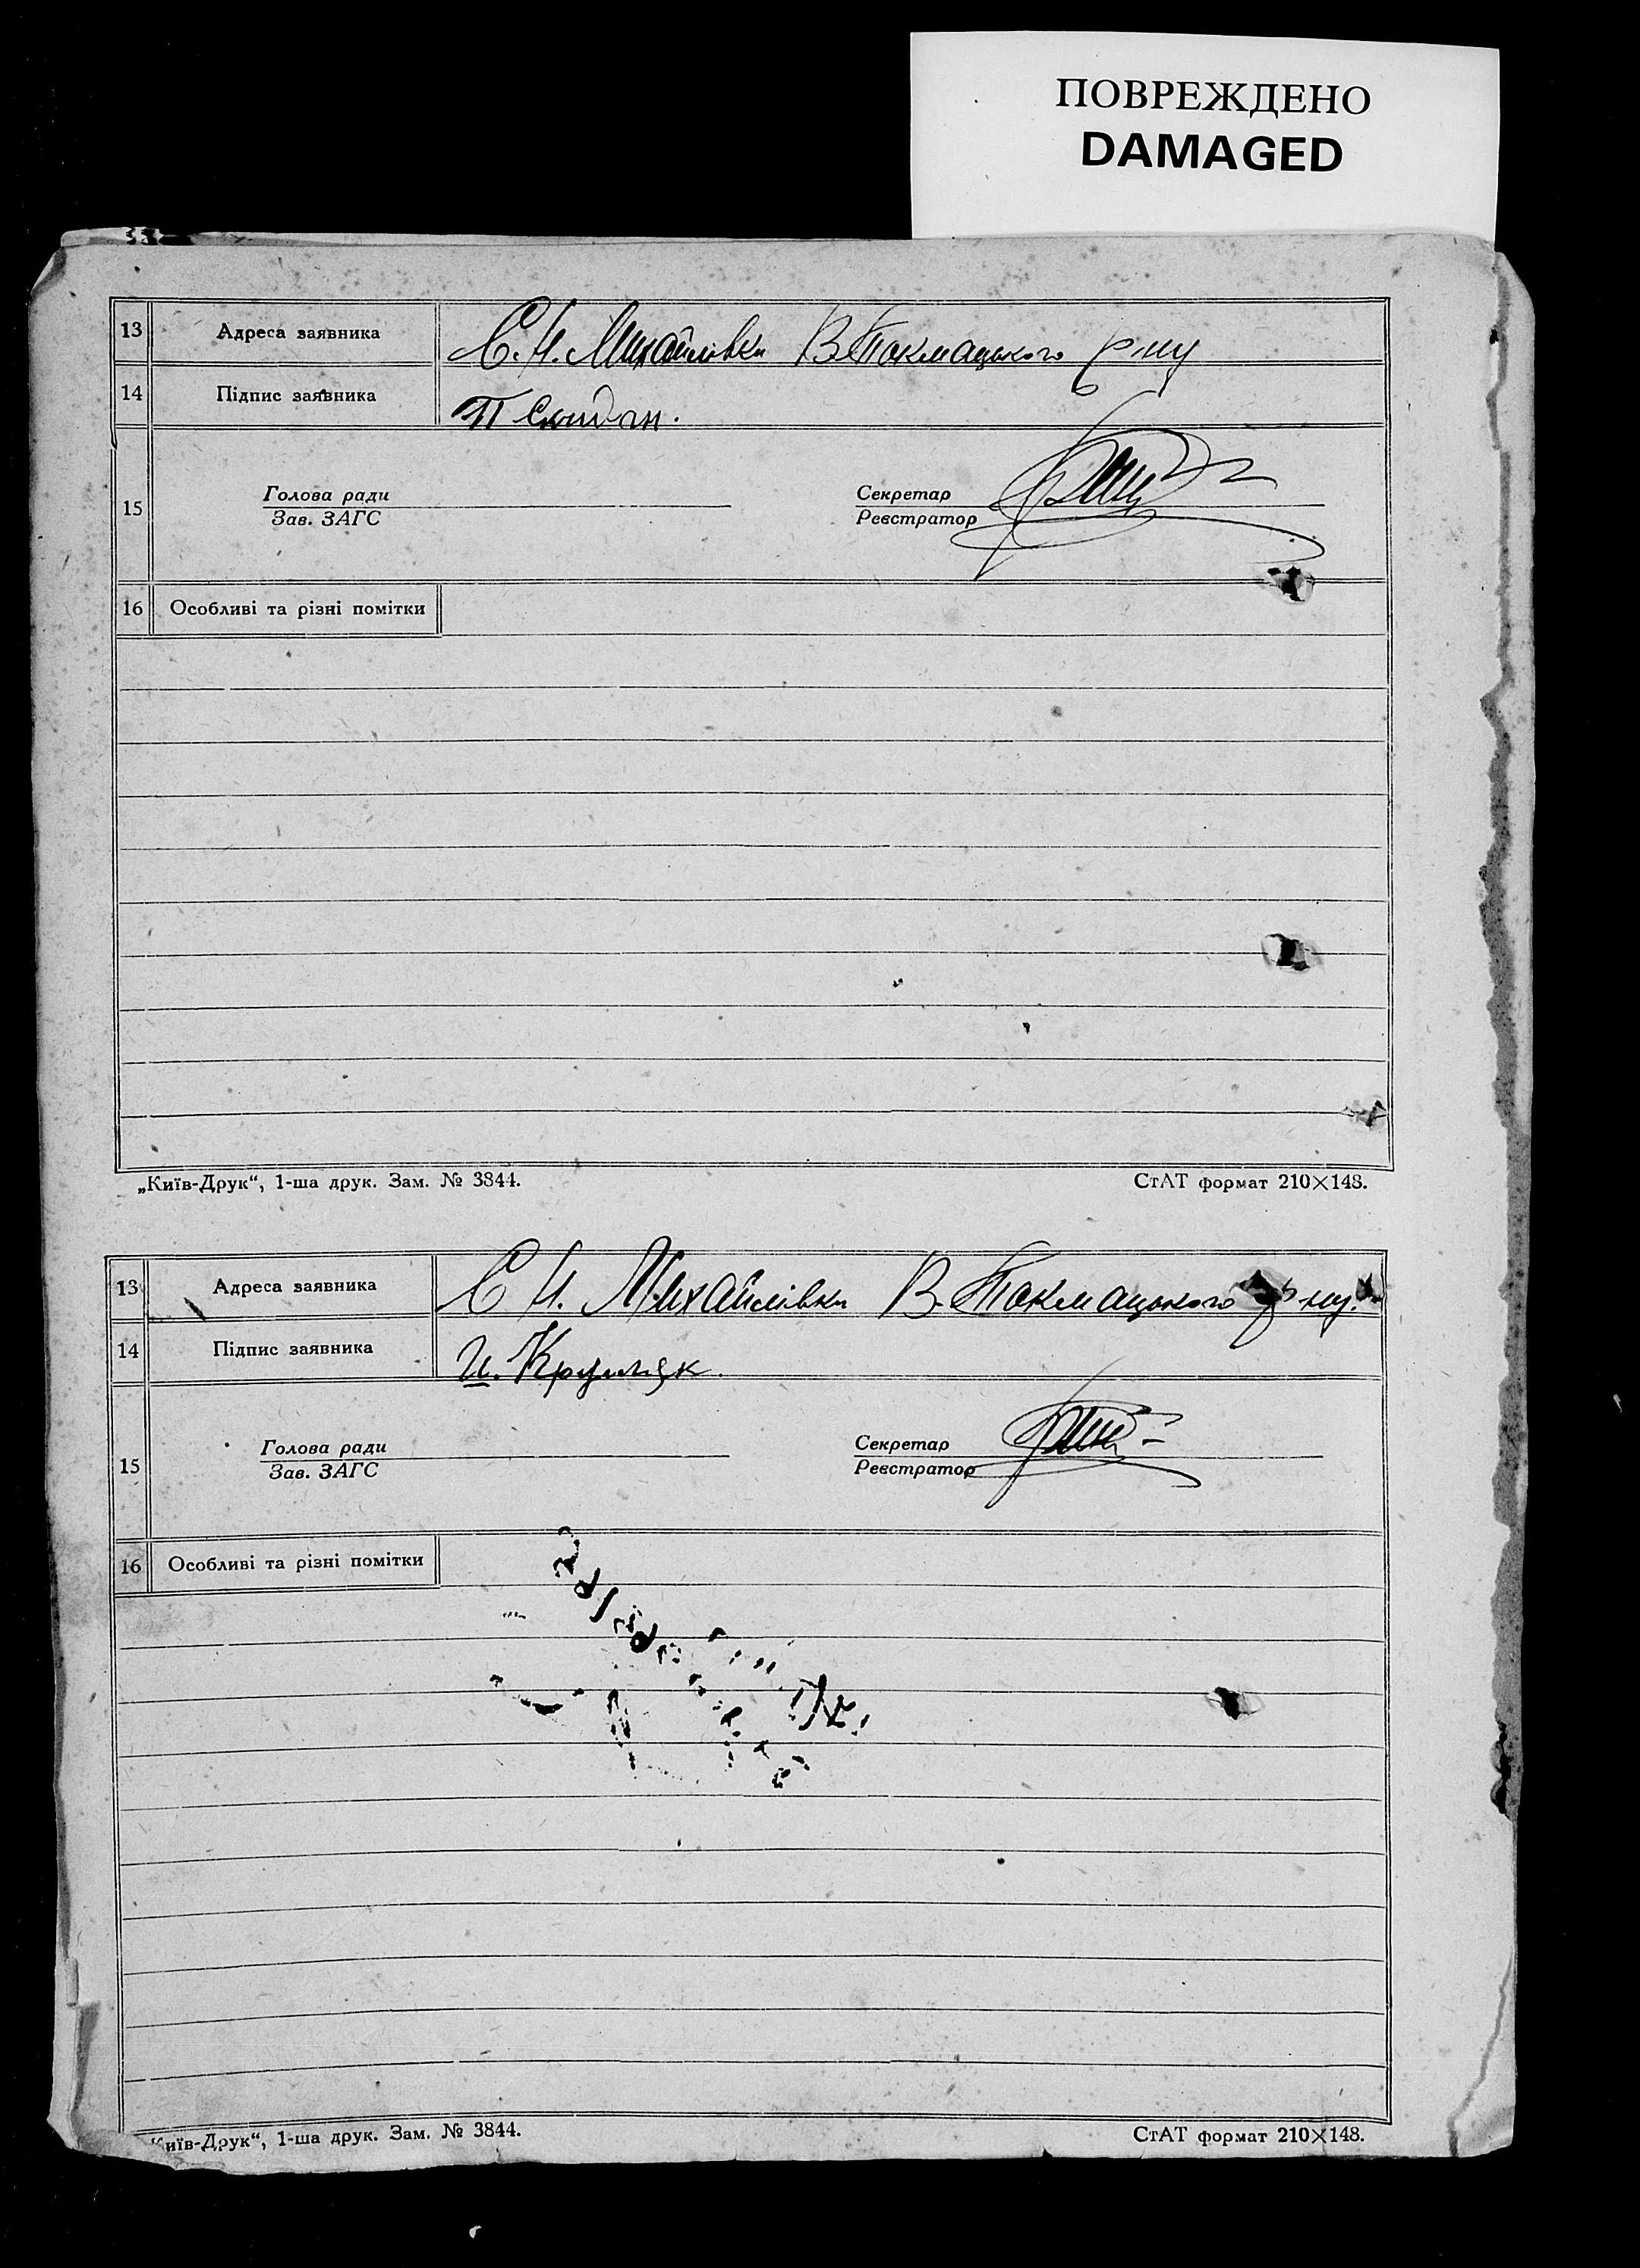 ПОВРЕЖДЕНО
DAMAGED
13 Адреса заявника С. Н. Михайлівки В. Токмацького р-ну
14 Підпис заявника П Скидан.
15 Голова ради Секретар
Зав. ЗАГС Реєстратор
16 Особливі та різні помітки
„Київ-Друк“, 1-ша друк. Зам. № 3844. СтАТ формат 210×148.
13 Адреса заявника С Н. Михайлівки В. Токмацького р-ну.
14 Підпис заявника И. Крумяк.
15 Голова ради Секретар
Зав. ЗАГС Реєстратор
16 Особливі та різні помітки
иїв-Друк“, 1-ша друк. Зам. № 3844. СтАТ формат 210×148.